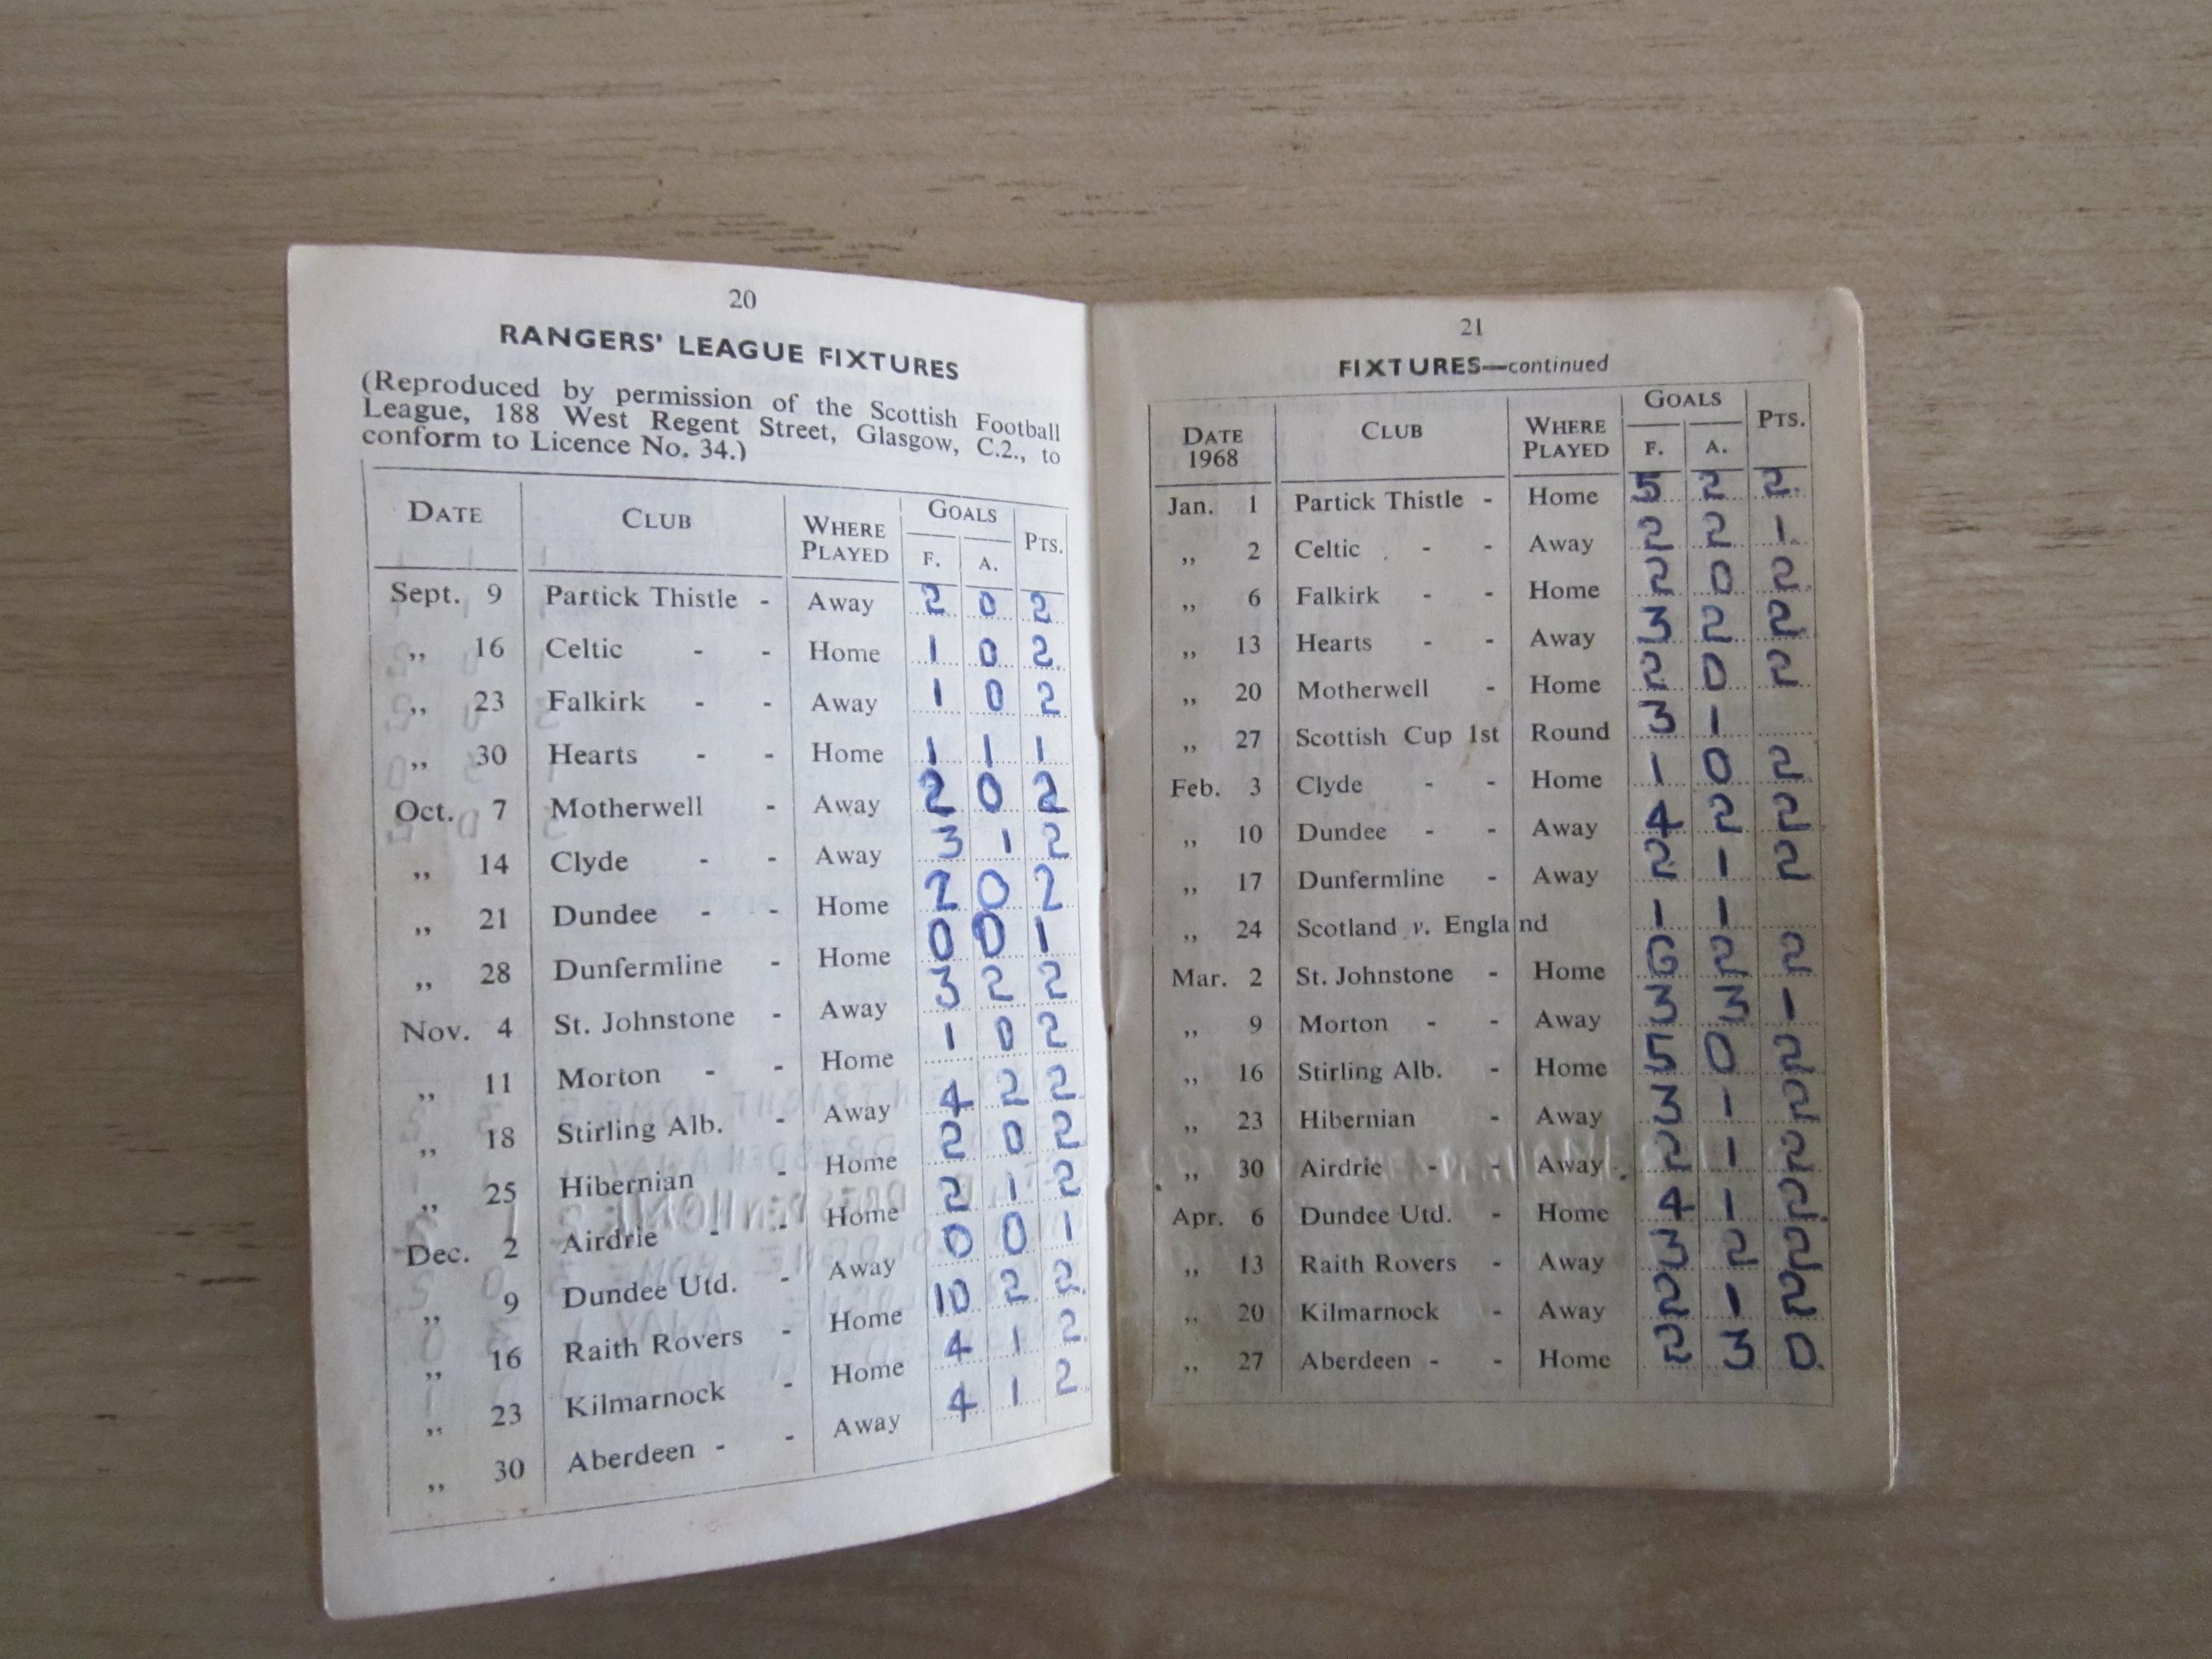 20
RANGERS' LEAGUE FIXTURES
(Reproduced by permission of the Scottish Football
League, 188 West Regent Street, Glasgow, C.2., to
conform to Licence No. 34.)
DATE CLUB WHERE PLAYED GOALS F. A. PTS.
Sept. 9 Partick Thistle - Away 2 0 2
,, 16 Celtic - - Home 1 0 2
,, 23 Falkirk - - Away 1 0 2
,, 30 Hearts - - Home 1 1 1
Oct. 7 Motherwell - Away 2 0 2
,, 14 Clyde - - Away 3 1 2
,, 21 Dundee - - Home 2 0 2
,, 28 Dunfermline - Home 0 0 1
Nov. 4 St. Johnstone - Away 3 2 2
,, 11 Morton - - Home 1 0 2
,, 18 Stirling Alb. - Away 4 2 2
,, 25 Hibernian - Home 2 0 2
Dec. 2 Airdrie - - Home 2 1 2
,, 9 Dundee Utd. - Away 0 0 1
,, 16 Raith Rovers - Home 10 2 2
,, 23 Kilmarnock - Home 4 1 2
,, 30 Aberdeen - - Away 4 1 2
21
FIXTURES—continued
DATE 1968 CLUB WHERE PLAYED GOALS F. A. PTS.
Jan. 1 Partick Thistle - Home 5 2 2
,, 2 Celtic - - Away 2 2 1
,, 6 Falkirk - - Home 2 0 2
,, 13 Hearts - - Away 3 2 2
,, 20 Motherwell - Home 2 0 2
,, 27 Scottish Cup 1st Round 3 1
Feb. 3 Clyde - - Home 1 0 2
,, 10 Dundee - - Away 4 2 2
,, 17 Dunfermline - Away 2 1 2
,, 24 Scotland v. England 1 1
Mar. 2 St. Johnstone - Home 6 2 2
,, 9 Morton - - Away 3 3 1
,, 16 Stirling Alb. - Home 5 0 2
,, 23 Hibernian - Away 3 1 2
,, 30 Airdrie - - Away 2 1 2
Apr. 6 Dundee Utd. - Home 4 1 2
,, 13 Raith Rovers - Away 3 2 2
,, 20 Kilmarnock - Away 2 1 2
,, 27 Aberdeen - - Home 2 3 0